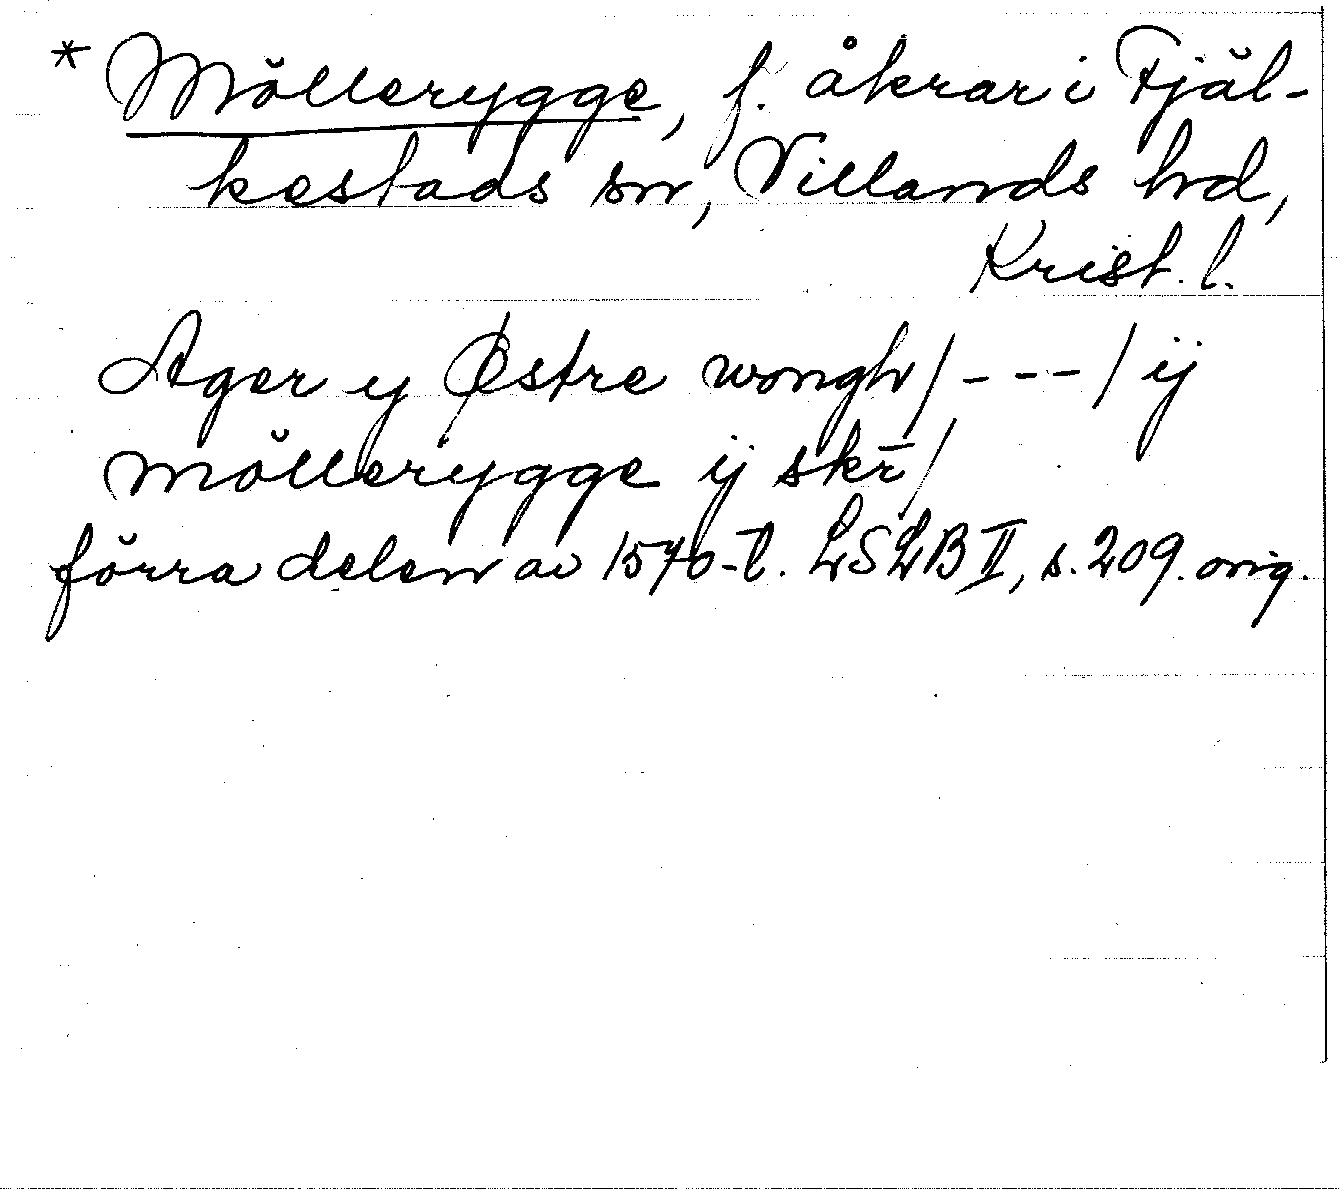 * Möllerygge, f. åkrar i Fjäl-
kestads sn, Villands hd,
Krist. l.
Ager y Østre wongh/---/ij
möllerygge ij skr̄/
förra delen av 1570-t. LSLB II, s. 209. orig.